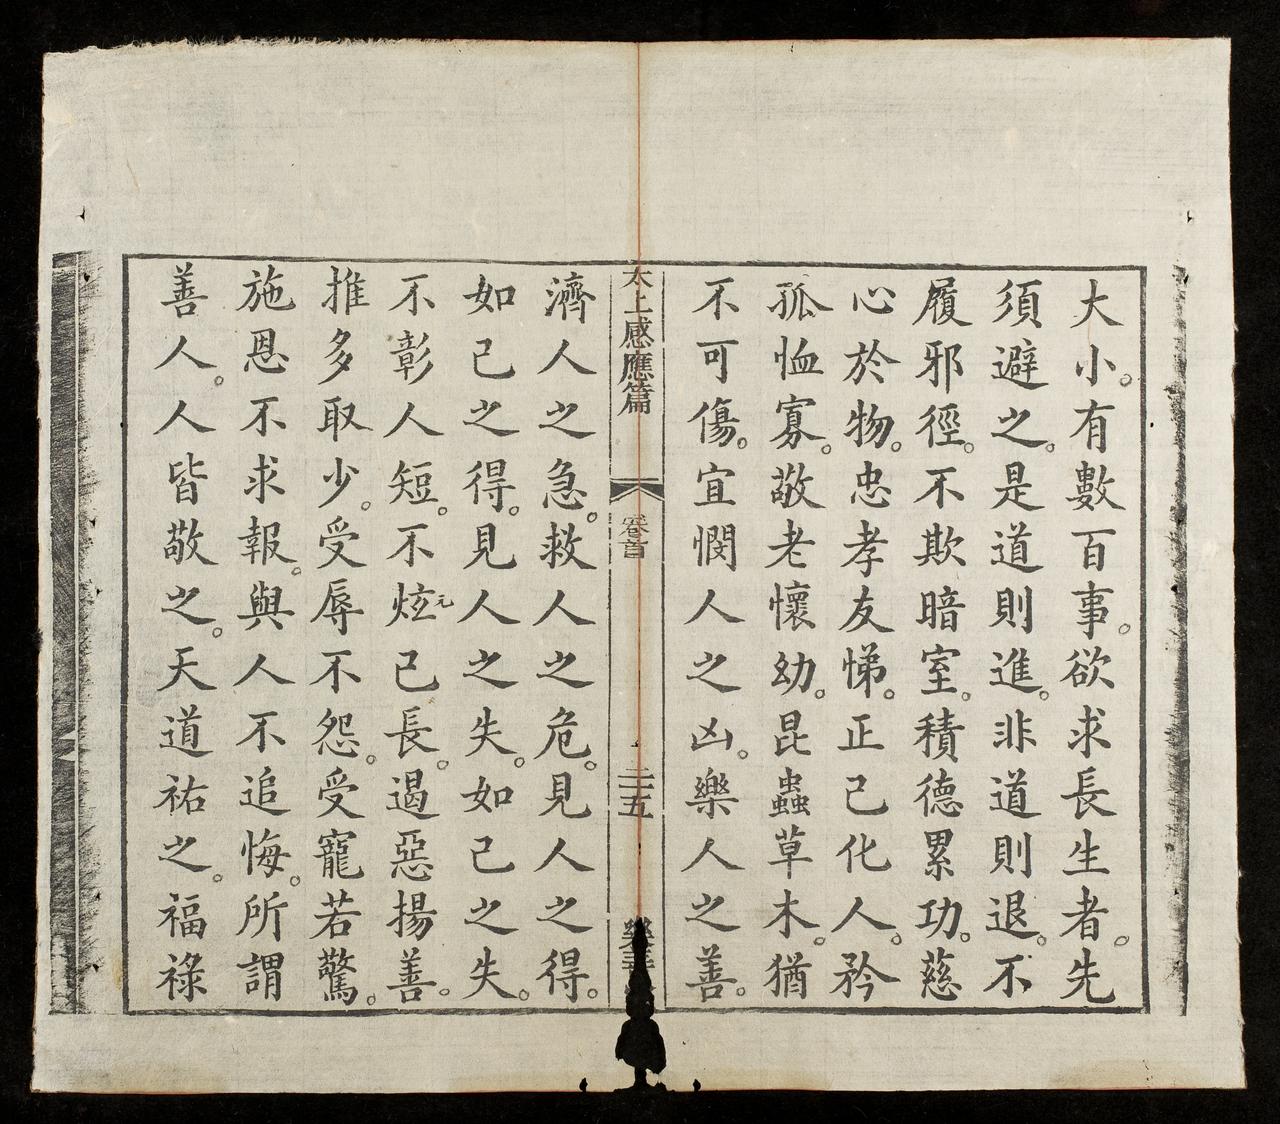 大小。有數百事。欲求長生者。先
須避之。是道則進。非道則退。不
履邪徑。不欺暗室。積德累功。慈
心於物。忠孝友悌。正己化人。矜
孤恤寡。敬老懷幼。昆蟲草木。猶
不可傷。宜憫人之凶。樂人之善。
太上感應篇
卷首
二五
濟人之急。救人之危。見人之得。
如己之得。見人之失。如己之失。
不彰人短。不炫元己長。遏惡揚善。
推多取少。受辱不怨。受寵若驚。
施恩不求報。與人不追悔。所謂
善人。人皆敬之。天道祐之。福祿